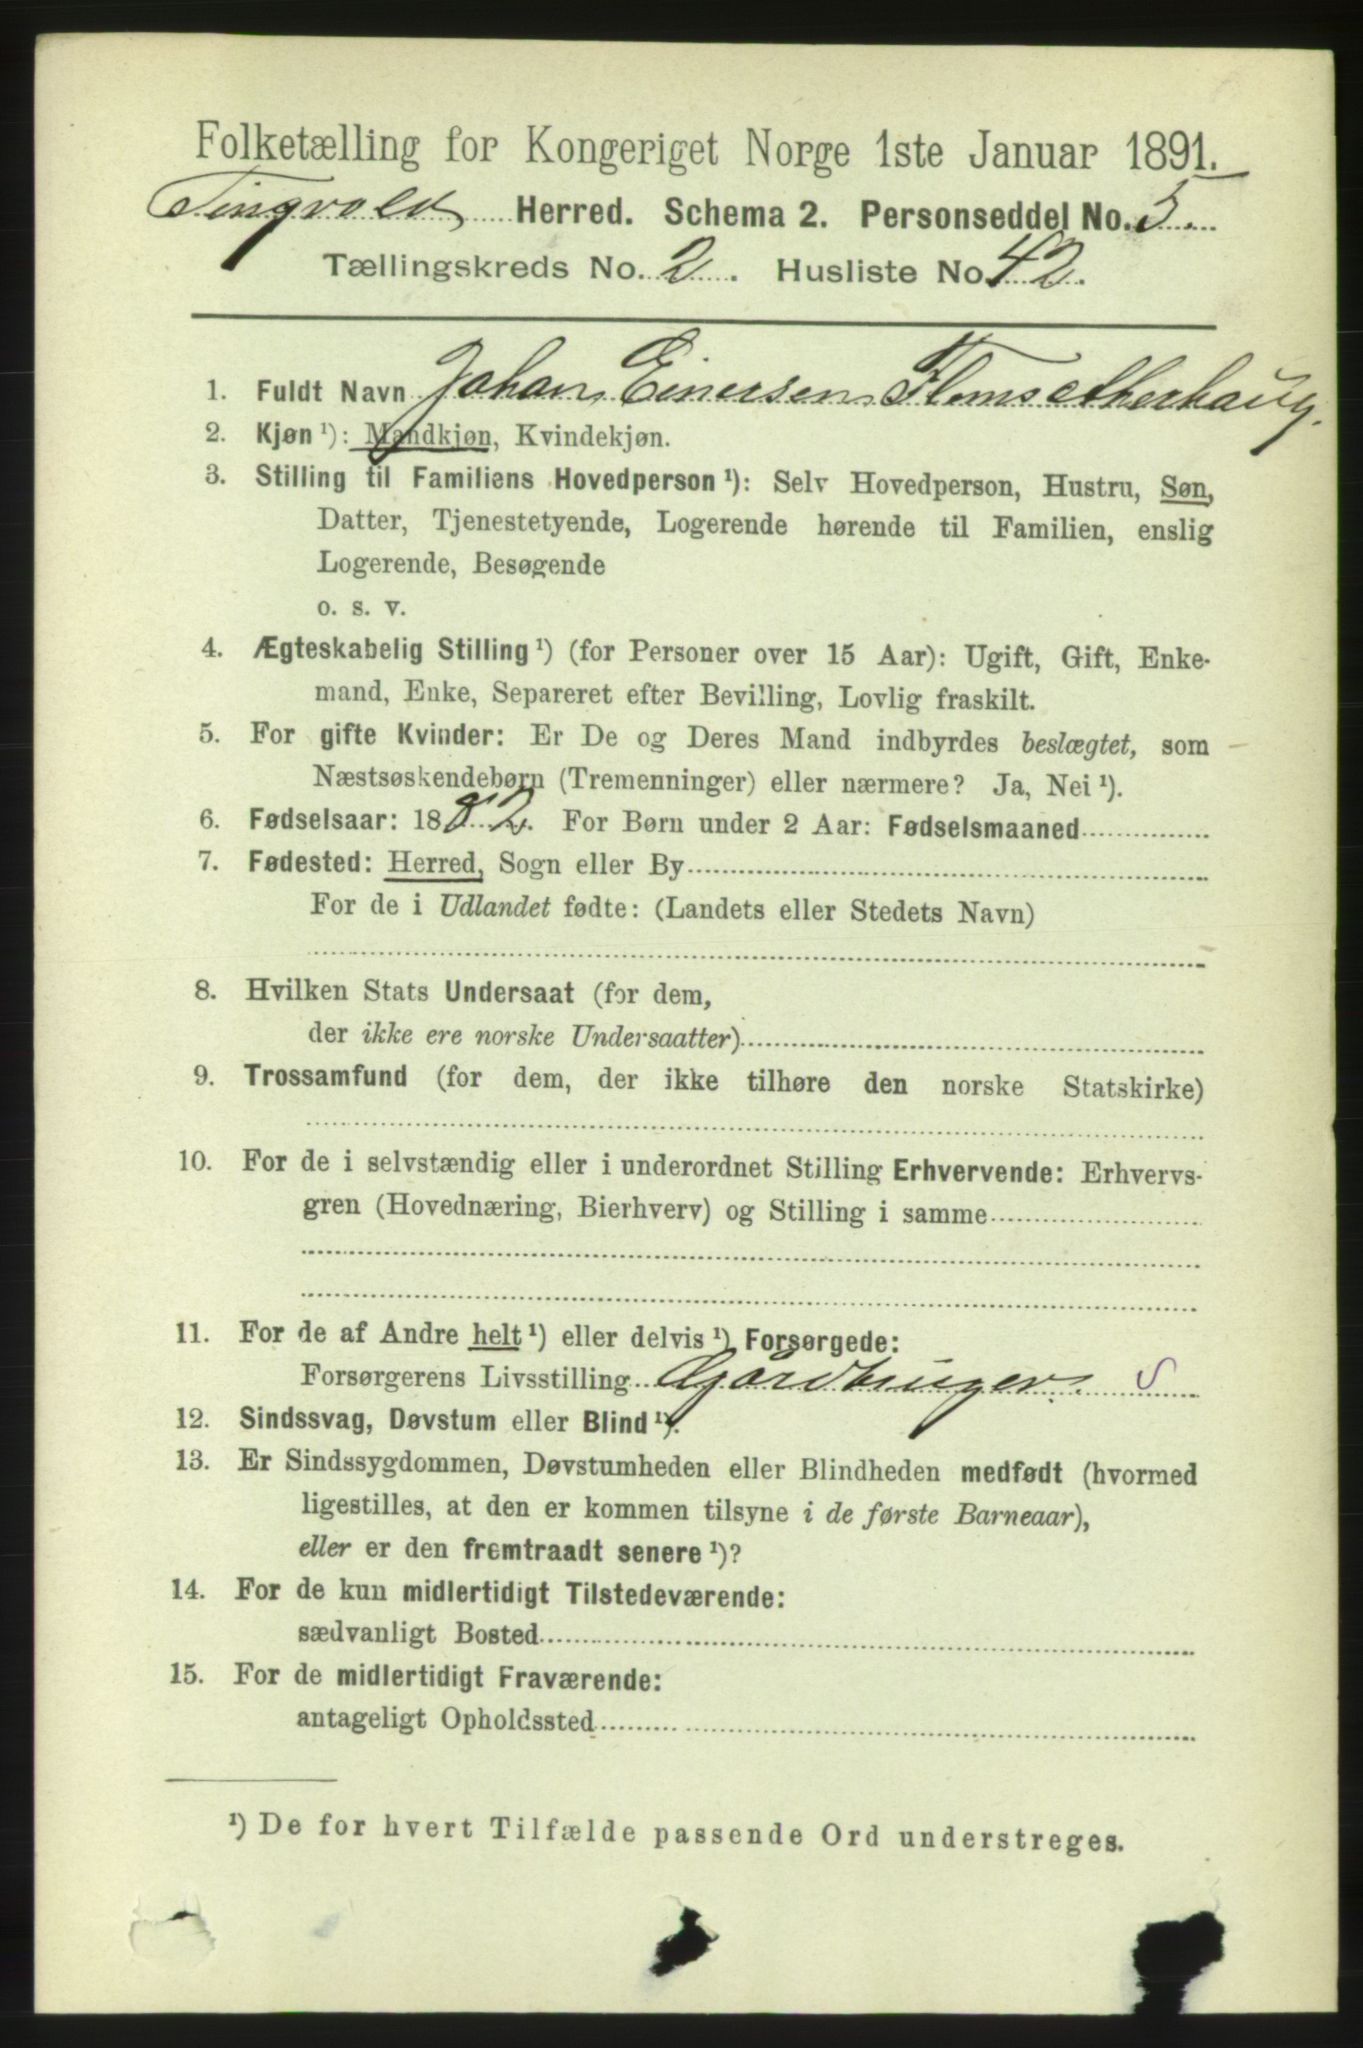 Folketælling for Kongeriget Norge 1ste Januar 1891.
Tingvold Herred. Schema 2. Personseddel No. 5.
Tællingskreds No. 2. Husliste No. 42.
1. Fuldt Navn Johan Einersen Flemsetherhaug.
2. Kjøn ¹): Mandkjøn, Kvindekjøn.
3. Stilling til Familiens Hovedperson ¹): Selv Hovedperson, Hustru, Søn,
Datter, Tjenestetyende, Logerende hørende til Familien, enslig
Logerende, Besøgende
o. s. v.
4. Ægteskabelig Stilling ¹) (for Personer over 15 Aar): Ugift, Gift, Enke-
mand, Enke, Separeret efter Bevilling, Lovlig fraskilt.
5. For gifte Kvinder: Er De og Deres Mand indbyrdes beslægtet, som
Næstsøskendebørn (Tremenninger) eller nærmere? Ja, Nei ¹).
6. Fødselsaar: 1882. For Børn under 2 Aar: Fødselsmaaned
7. Fødested: Herred, Sogn eller By
For de i Udlandet fødte: (Landets eller Stedets Navn)
8. Hvilken Stats Undersaat (for dem,
der ikke ere norske Undersaatter)
9. Trossamfund (for dem, der ikke tilhøre den norske Statskirke)
10. For de i selvstændig eller i underordnet Stilling Erhvervende: Erhvervs-
gren (Hovednæring, Bierhverv) og Stilling i samme
11. For de af Andre helt ¹) eller delvis ¹) Forsørgede:
Forsørgerens Livsstilling Gjårdbruger. S
12. Sindssvag, Døvstum eller Blind ¹).
13. Er Sindssygdommen, Døvstumheden eller Blindheden medfødt (hvormed
ligestilles, at den er kommen tilsyne i de første Barneaar),
eller er den fremtraadt senere ¹)?
14. For de kun midlertidigt Tilstedeværende:
sædvanligt Bosted
15. For de midlertidigt Fraværende:
antageligt Opholdssted
¹) De for hvert Tilfælde passende Ord understreges.